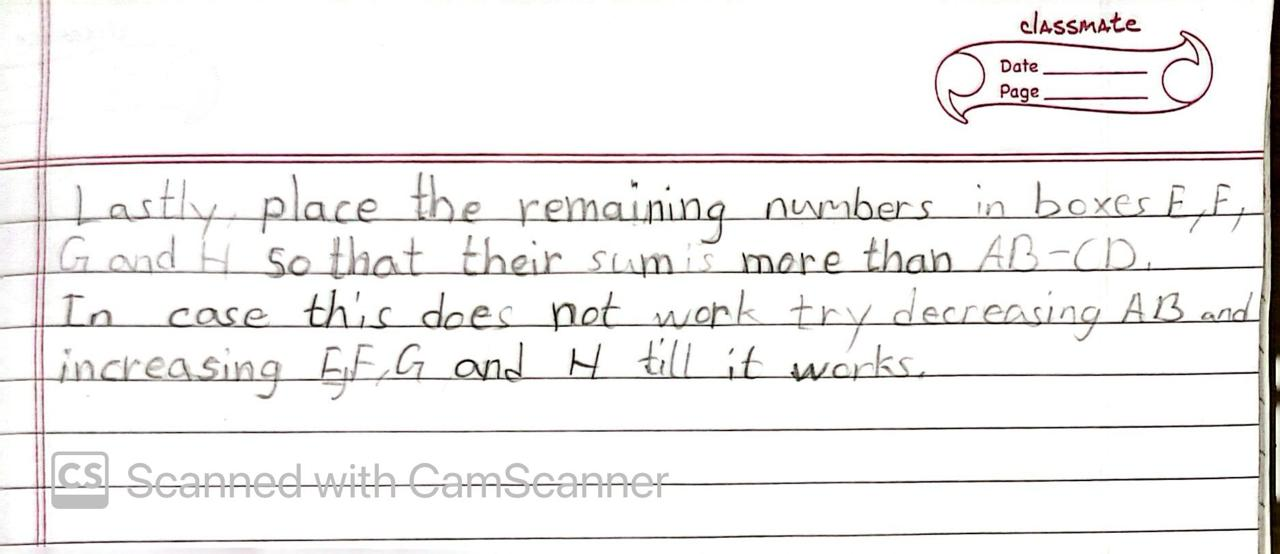 classmate
Date
Page
Lastly, place the remaining numbers in boxes E, F,
G and H so that their sum is more than AB-CD.
In case this does not work try decreasing AB and
increasing E,F,G and H till it works.
CS Scanned with CamScanner